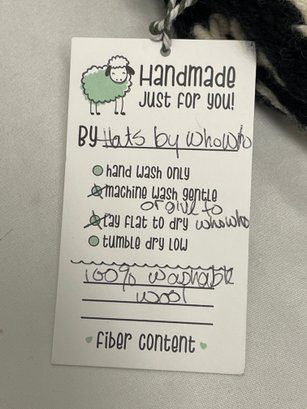 Handmade
Just for you!
BY Hats by whowho
hand wash only
machine wash gentle
or give to
lay flat to dry whowho
tumble dry low
100% washable
wool
fiber content